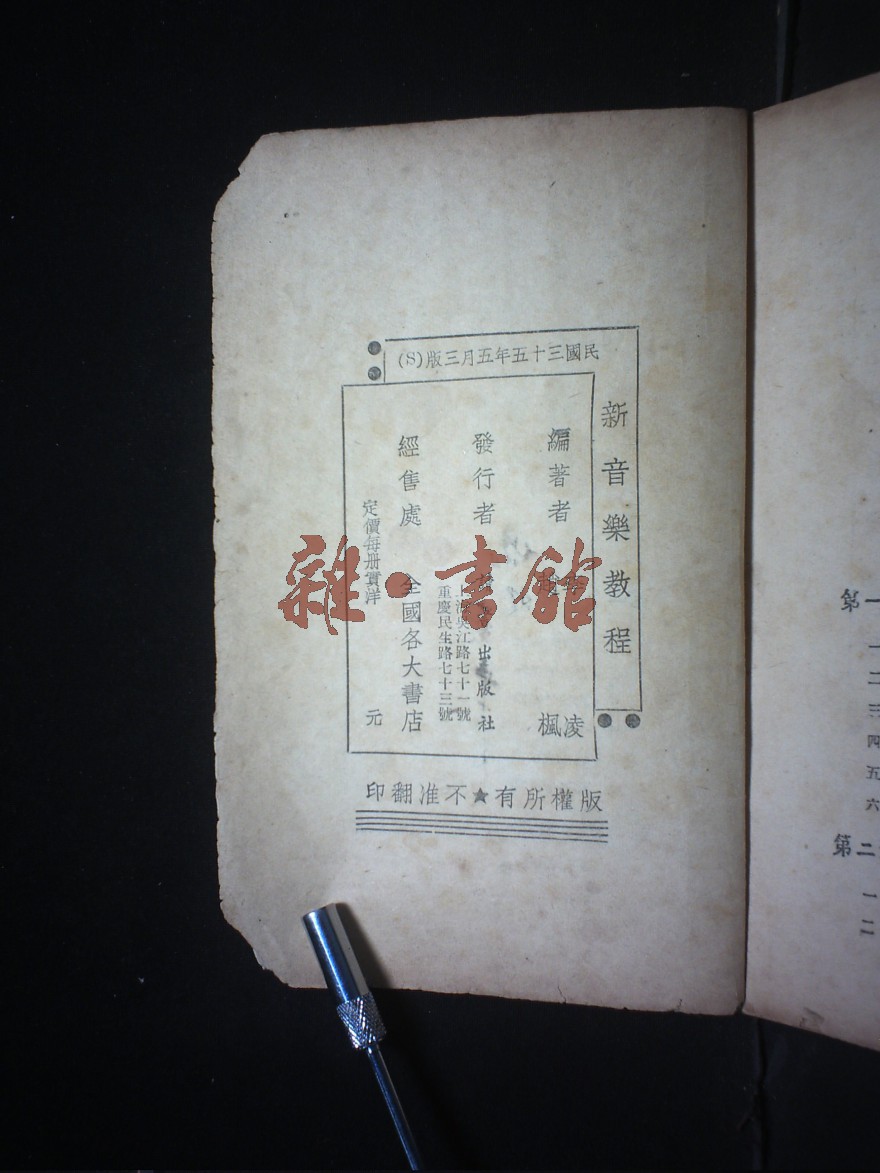 新音樂教程
民國三十五年五月三版(S)
編著者 凌
楓
發行者 出版社
上海吳江路七十一號
重慶民生路七十三號
經售處 全國各大書店
定價每册實洋 元
版權所有★不准翻印
雜·書館
第一
一
二
三
四
五
六
第二
一
二